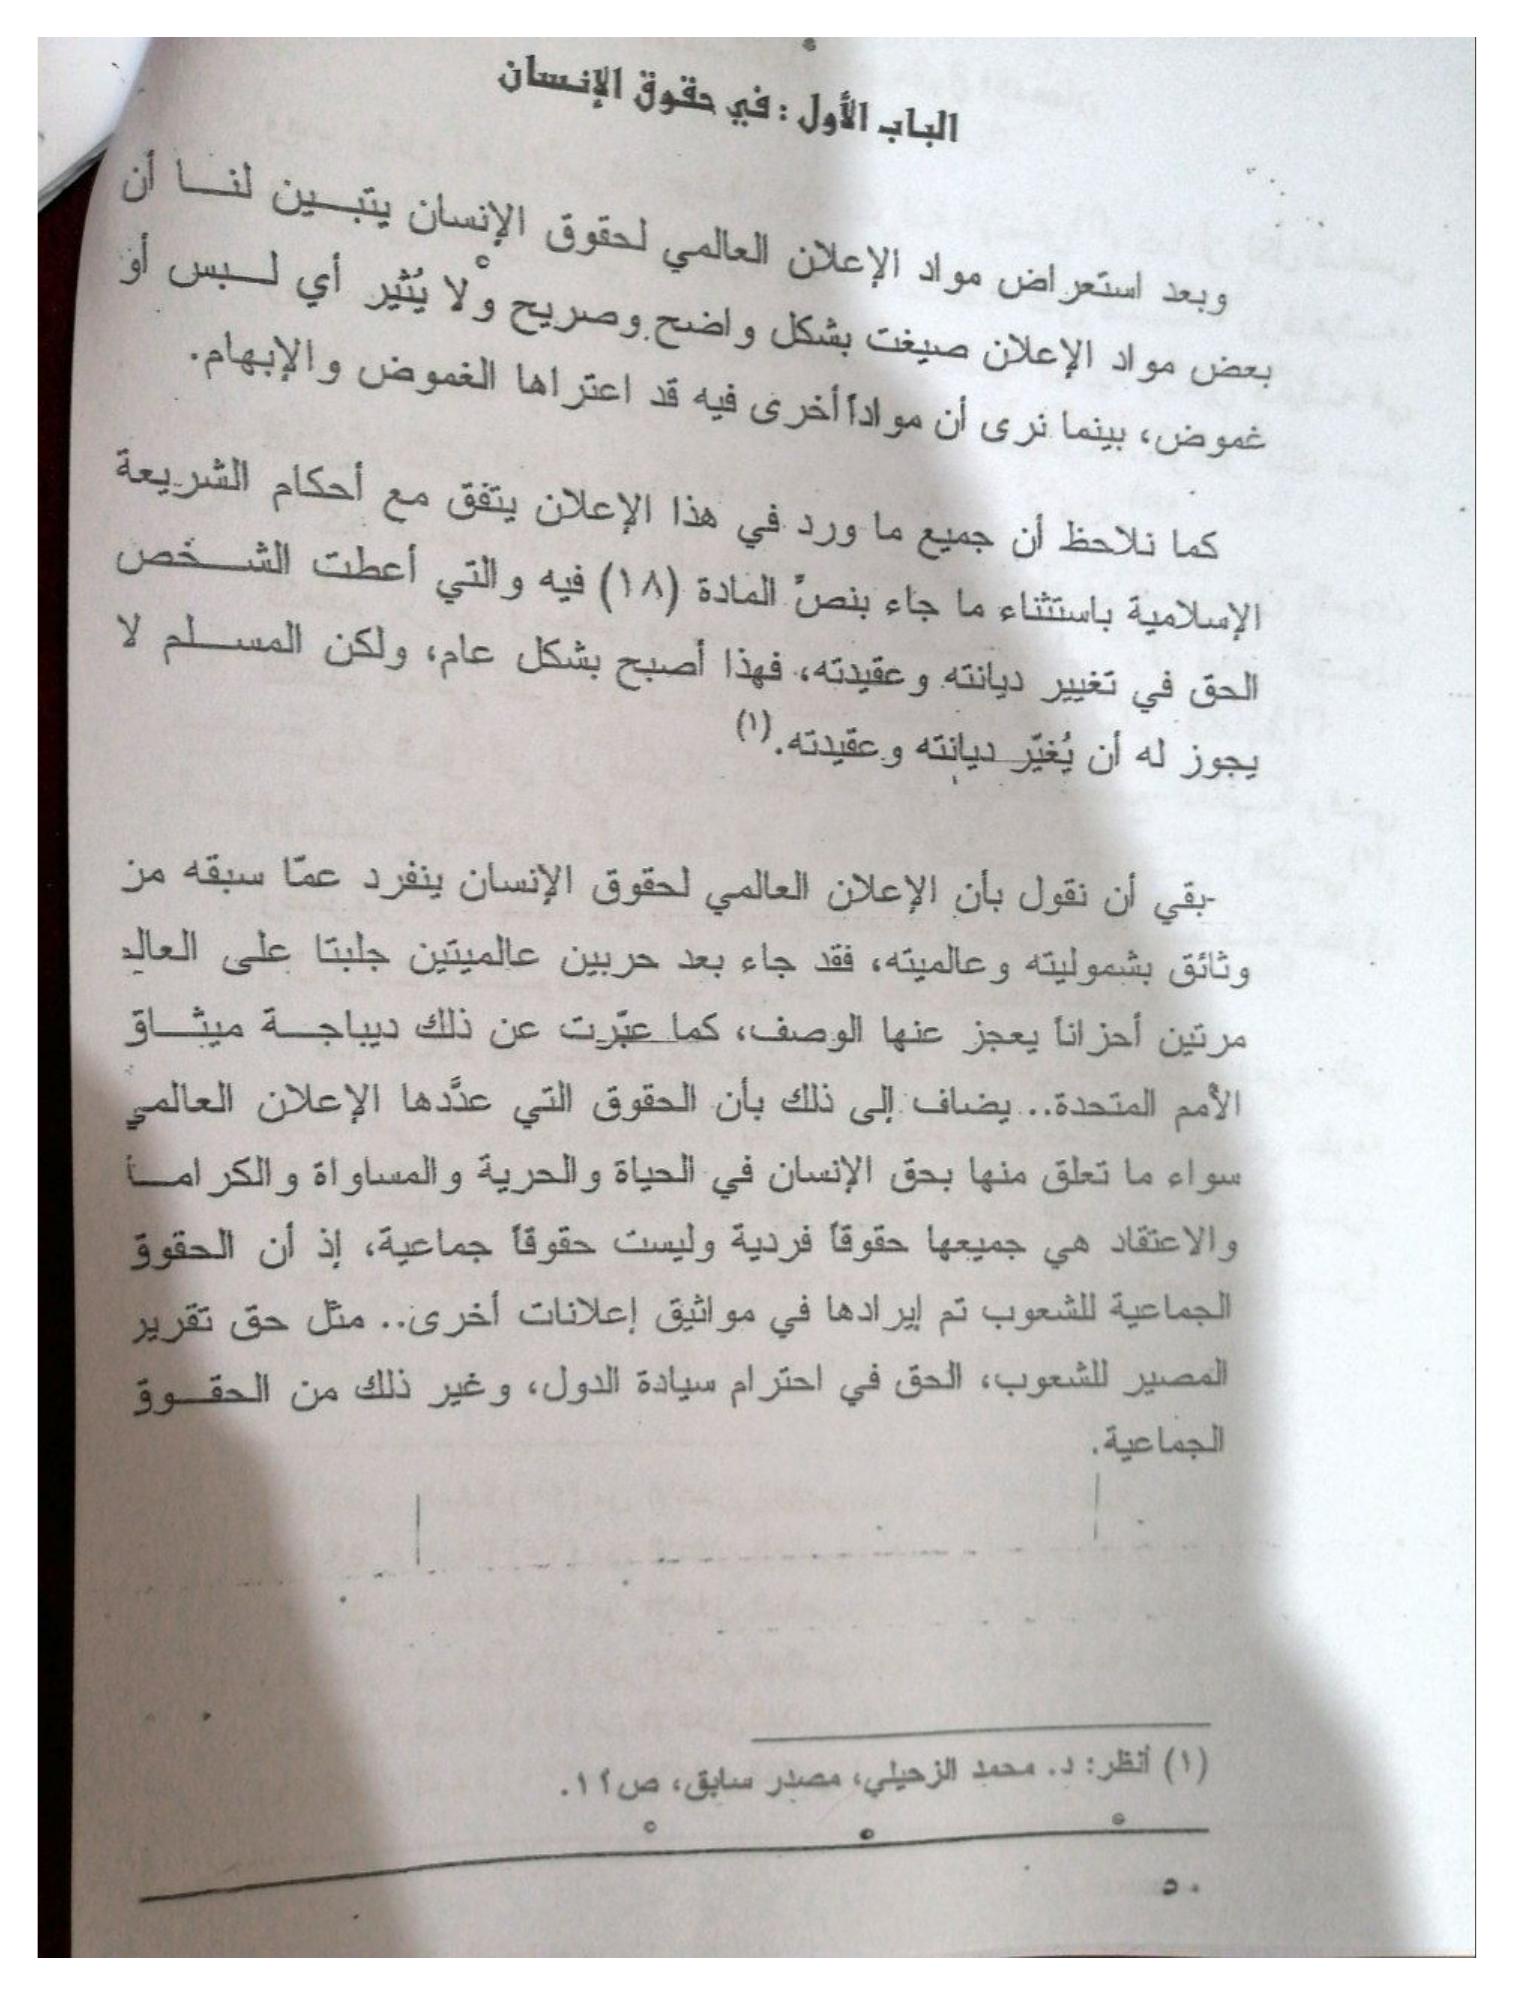 الباب الأول : في حقوق الإنسان
وبعد استعراض مواد الإعلان العالمي لحقوق الإنسان يتبين لنا أن
بعض مواد الإعلان صيغت بشكل واضح وصريح ولا يُثير أي لبس أو
غموض، بينما نرى أن مواداً أخرى فيه قد اعتراها الغموض والإبهام.
كما نلاحظ أن جميع ما ورد في هذا الإعلان يتفق مع أحكام الشريعة
الإسلامية باستثناء ما جاء بنصِّ المادة (١٨) فيه والتي أعطت الشخص
الحق في تغيير ديانته وعقيدته، فهذا أصبح بشكل عام، ولكن المسلم لا
يجوز له أن يُغيّر ديانته وعقيدته.(١)
-بقي أن نقول بأن الإعلان العالمي لحقوق الإنسان ينفرد عمّا سبقه من
وثائق بشموليته وعالميته، فقد جاء بعد حربين عالميتين جلبتا على
مرتين أحزاناً يعجز عنها الوصف، كما عبّرت عن ذلك ديباجة ميثاق
الأمم المتحدة.. يضاف إلى ذلك بأن الحقوق التي عدَّدها الإعلان العالمي
سواء ما تعلق منها بحق الإنسان في الحياة والحرية والمساواة
والاعتقاد هي جميعها حقوقاً فردية وليست حقوقاً جماعية، إذ أن الحقوق
الجماعية للشعوب تم إيرادها في مواثيق إعلانات أخرى.. مثل حق تقرير
المصير للشعوب، الحق في احترام سيادة الدول، وغير ذلك من الحقوق
الجماعية.
(١) أنظر: د. محمد الزحيلي، مصدر سابق،
٥٠